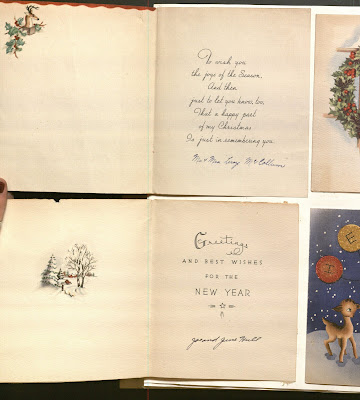 To wish you
the joys of the Season,
And then
just to let you know, too,
That a happy part
of my Christmas
Is just in remembering you.
Mr & Mrs Leroy McCollum
Greetings
AND BEST WISHES
FOR THE
NEW YEAR
June
E